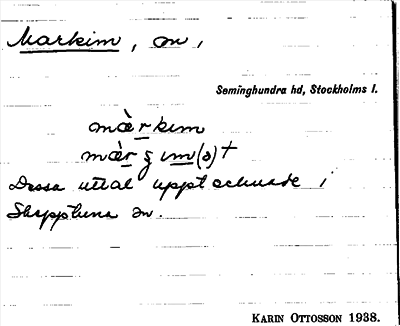 Markim, sn,
Seminghundra hd, Stockholms l.
màrkim
mær ʒ im(ə)+
Dessa uttal uppt ecknade i
Skepptuna sn.
KARIN OTTOSSON 1938.